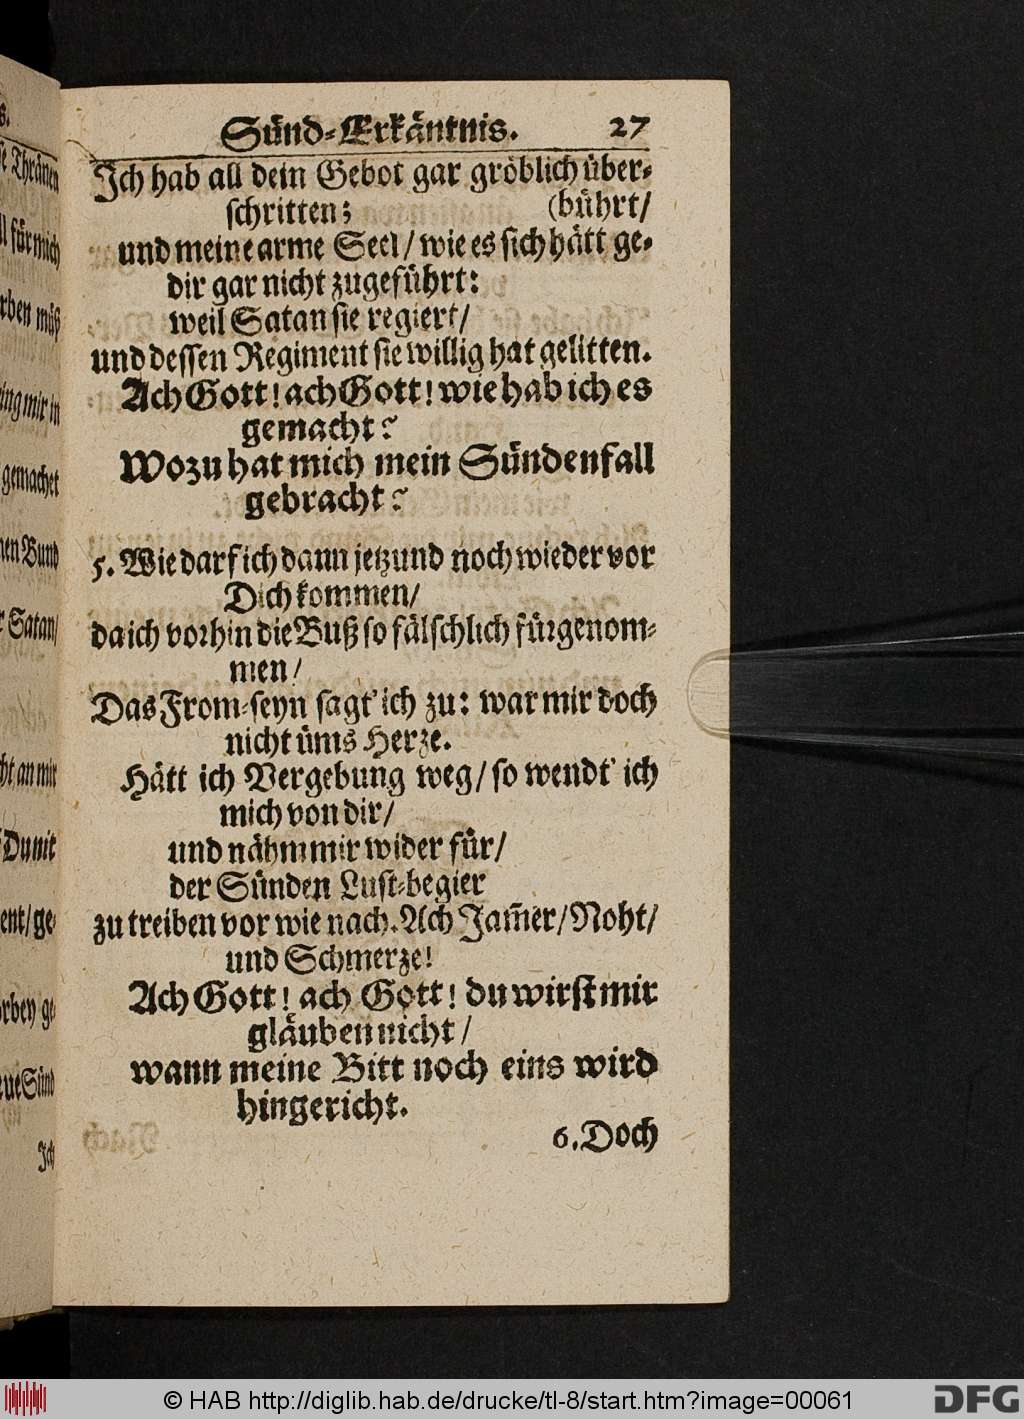 Sünd-Erkäntnis. 27
Ich hab all dein Gebot gar gröblich über-
schritten; (bührt/
und meine arme Seel/ wie es sich hätt ge-
dir gar nicht zugeführt:
weil Satan sie regiert/
und dessen Regiment sie willig hat gelitten.
Ach Gott! ach Gott! wie hab ich es
gemacht?
Wozu hat mich mein Sündenfall
gebracht?
5. Wie darf ich dann jetzund noch wieder vor
Dich kommen/
da ich vorhin die Buß so fälschlich fürgenom-
men/
Das From-seyn sagt' ich zu: war mir doch
nicht üms Herze.
Hätt ich Vergebung weg/ so wendt' ich
mich von dir/
und nähm mir wider für/
der Sünden Lust-begier
zu treiben vor wie nach. Ach Jam̃er/ Noht/
und Schmerze!
Ach Gott! ach Gott! du wirst mir
gläuben nicht/
wann meine Bitt noch eins wird
hingericht.
6. Doch
s.
Thränen
für mich
müß
mir in
gemachet
Bund
Satan/
an mir
Du nit
ge-
ge-
Sünd
Ich
© HAB http://diglib.hab.de/drucke/tl-8/start.htm?image=00061
DFG